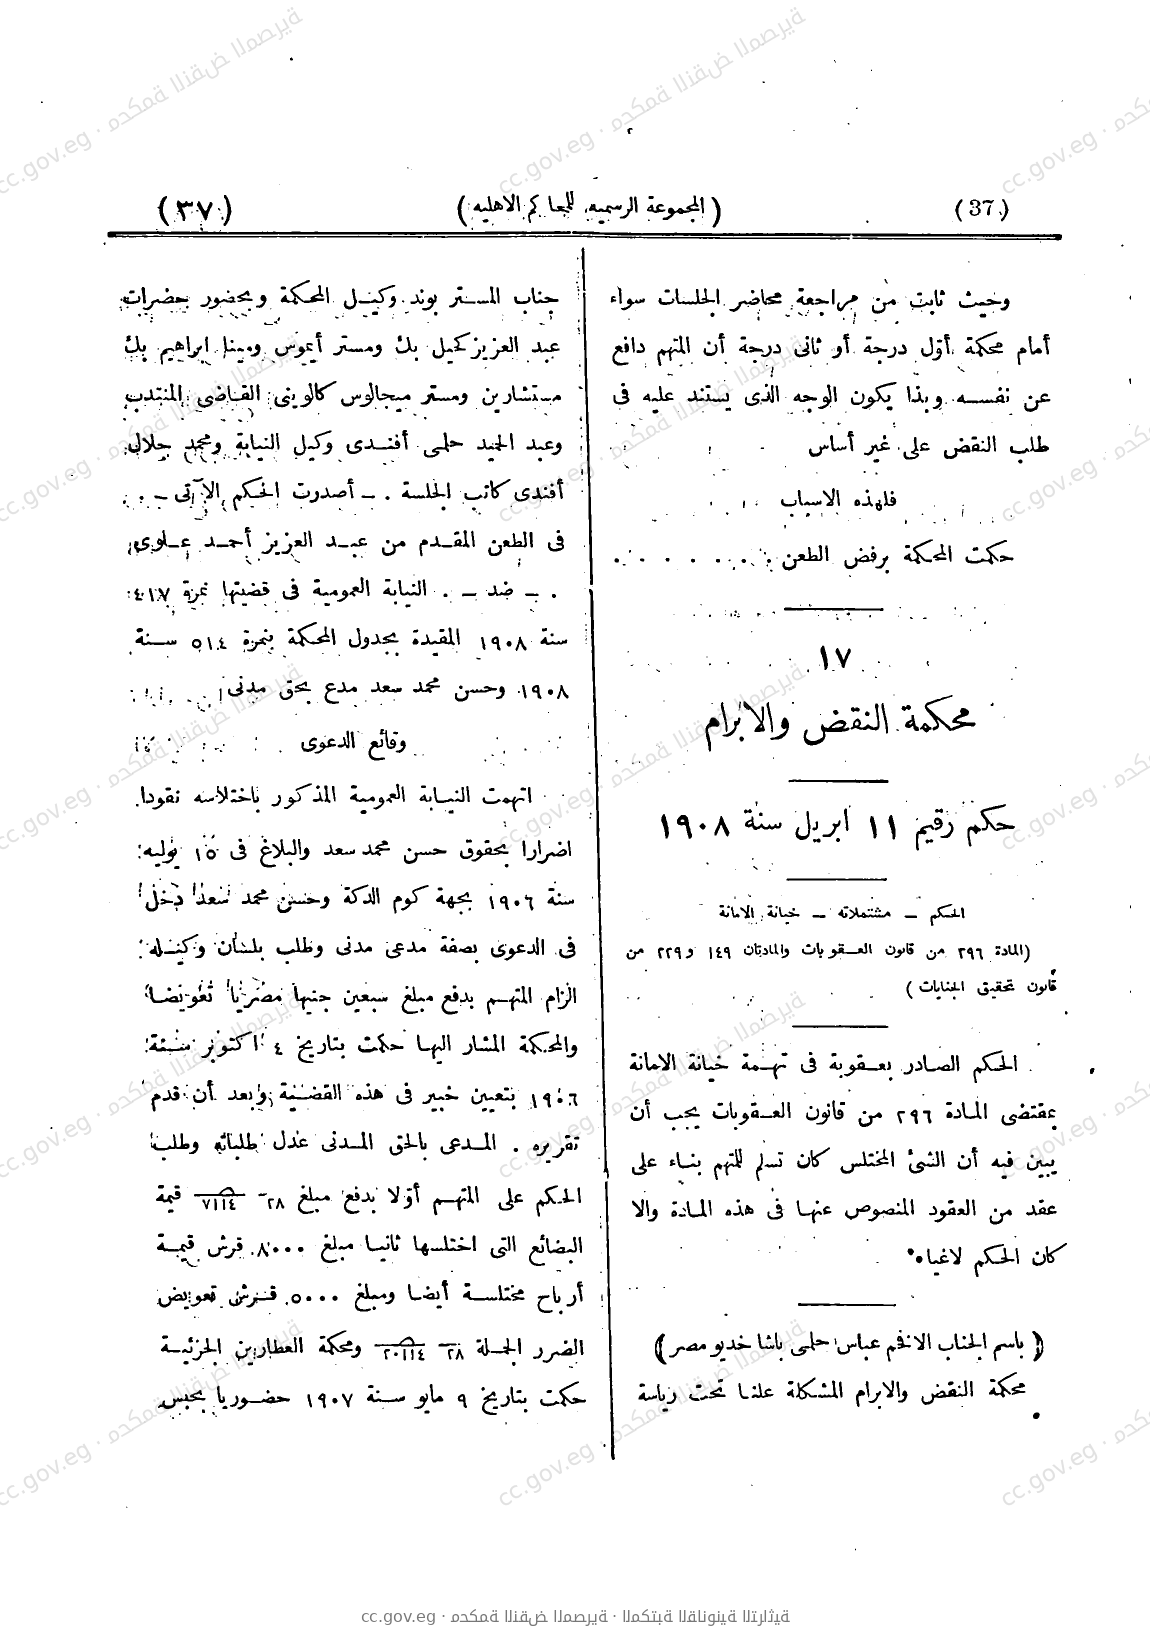 (37) (المجموعة الرسميه للمحاكم الاهليه) (٣٧)
وحيث ثابت من مراجعة محاضر الجلسات سواء
أمام محكمة أوّل درجة أو ثانى درجة أن المتهم دافع
عن نفسـه وبذا يكون الوجه الذى يستند عليه فى
طلب النقض على غير أساس
فلهذه الاسباب
حكمت المحكمة برفض الطعن . . . . . . .
١٧
محكمة النقض والابرام
حكم رقيم ١١ ابريل سنة ١٩٠٨
الحكم – مشتملاته – خيانة الامانة
(المادة ٢٩٦ من قانون العـقوبات والمادتان ١٤٩ و٢٢٩ من
قانون تحقيق الجنايات)
الحكم الصـادر بعـقوبة فى تهـمة خيانة الامانة
بمقتضى المـادة ٢٩٦ من قانون العـقوبات يجب أن
يبين فيه أن الشئ المختلس كان تسلم للمتهم بنـاء على
عقد من العقود المنصوص عنهـا فى هذه المـادة والا
كان الحكم لاغيا
(باسم الجناب الافخم عباس حلمى باشا خديو مصر)
محكمة النقض والابرام المشكلة علنـا تحت رياسة
جناب المسـتر بوند وكيـل المحكمة وبحضور حضرات
عبد العزيز كحيل بك ومستر أيموس ومينا ابراهيم بك
مستشارين ومستر ميجالوس كالوينى القـاضى المنتدب
وعبد الحميد حلمى أفنـدى وكيل النيابة ومحمد جلال
أفندى كاتب الجلسة . – أصدرت الحكم الآتى – .
فى الطعن المقـدم من عبـد العزيز أحمـد عـلوى
. – ضد – . النيابة العمومية فى قضيتها نمرة ٤١٧
سنة ١٩٠٨ المقيدة بجدول المحكمة بنمرة ٥١٤ سـنة
١٩٠٨ وحسن محمد سعد مدع بحق مدنى
وقائع الدعوى
اتهمت النيـابة العمومية المذكور باختلاسه نقودا
اضرارا بحقوق حسن محمد سعد والبلاغ فى ١٥ يوليه
سنة ١٩٠٦ بجهة كوم الدكة وحسن محمد سعد دخل
فى الدعوى بصفة مدعى مدنى وطلب بلسان وكيـله
الزام المتهـم بدفع مبلغ سبعين جنيها مصريا تعويضا
والمحكمة المشار اليهـا حكمت بتاريخ ٤ اكتوبر سنة
١٩٠٦ بتعيين خبير فى هذه القضية وبعد أن قدم
تقريره . المـدعى بالحق المـدنى عدل طلباته وطلب
الحكم على المتهـم أوّلا بدفع مبلغ ٢٨ ٧١١٤ قيمة
البضائع التى اختلسها ثانيـا مبلغ ٨٠٠٠ قرش قيمـة
أرباح مختلسـة أيضـا ومبلغ ٥٠٠٠ قـرش تعويض
الضرر الجملة ٢٨ ٢٠١١٤ ومحكمة العطارين الجزئيـة
حكمت بتاريخ ٩ مايو سـنة ١٩٠٧ حضـوريا بحبس
cc.gov.eg · محكمة النقض المصرية · المكتبة القانونية التراثية